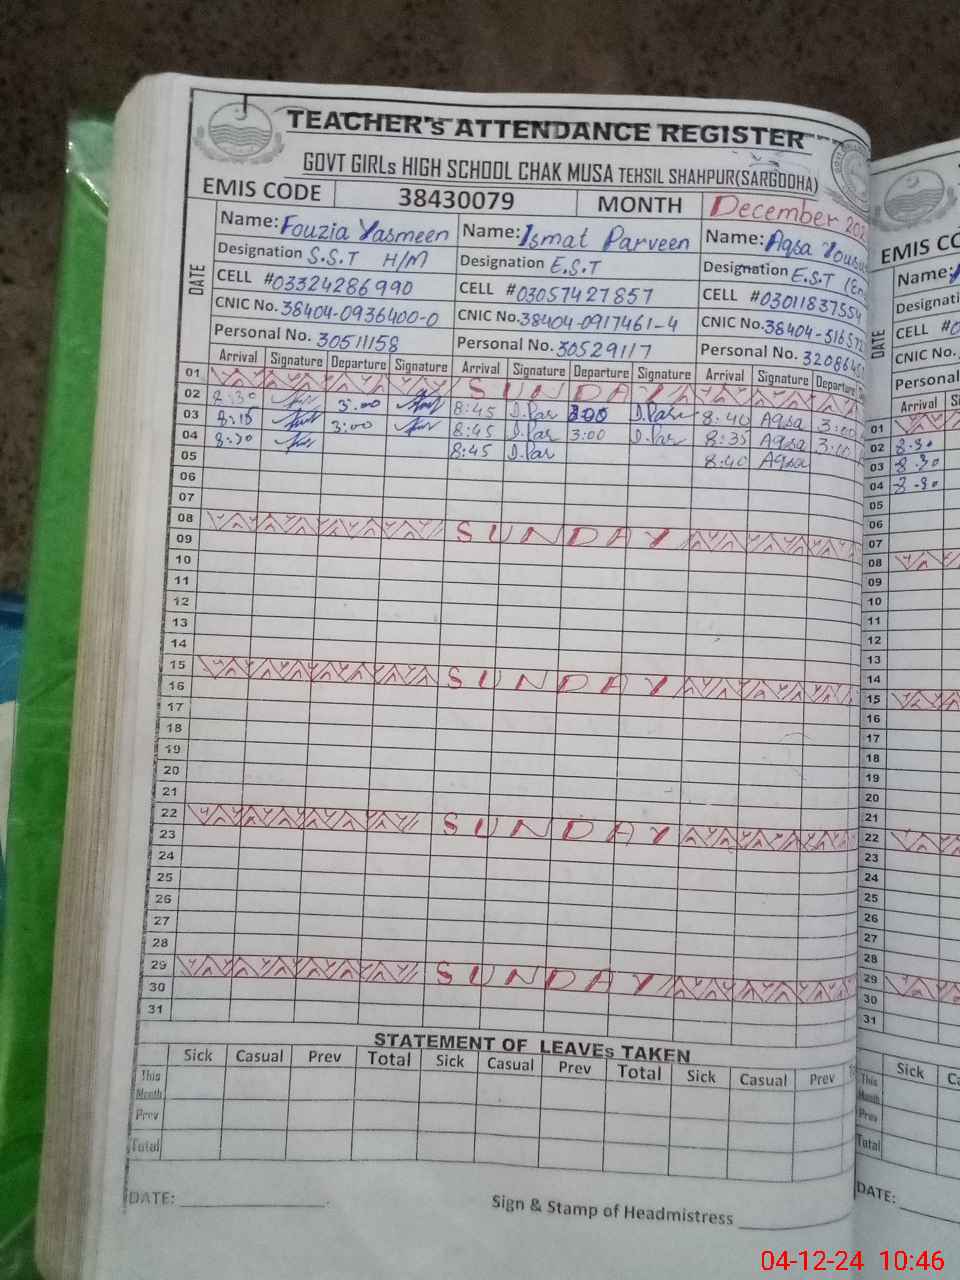 TEACHER's ATTENDANCE REGISTER
GOVT GIRLs HIGH SCHOOL CHAK MUSA TEHSIL SHAHPUR(SARGODHA)
EMIS CODE 38430079 MONTH December
DATE
Name: Fouzia Yasmeen Name: Ismat Parveen Name: Aqsa
Designation S.S.T H/M Designation E.S.T Designation E.S.T
CELL #03324286990 CELL #03057427857 CELL #03011837554
CNIC No. 38404-0936400-0 CNIC No. 38404-0917461-4 CNIC No. 38404-
Personal No. 30511158 Personal No. 30529117 Personal No.
Arrival Signature Departure Signature Arrival Signature Departure Signature Arrival Signature Departure
01 SUNDAY
02 8:30 3:00 8:45 I.Par 3:00 I.Par 8:40 Aqsa 3:00
03 8:15 3:00 8:45 I.Par 3:00 I.Par 8:35 Aqsa 3:00
04 8:30 8:45 I.Par 8:40 Aqsa
05
06
07
08 SUNDAY
09
10
11
12
13
14
15 SUNDAY
16
17
18
19
20
21
22 SUNDAY
23
24
25
26
27
28
29 SUNDAY
30
31
STATEMENT OF LEAVEs TAKEN
Sick Casual Prev Total Sick Casual Prev Total Sick Casual Prev
This Month
Prev
Total
DATE:
Sign & Stamp of Headmistress
DATE
Name:
CELL #0
CNIC No.
Personal
Arrival
01
02 8:30
03 8:30
04 8:30
05
06
07
08
09
10
11
12
13
14
15
16
17
18
19
20
21
22
23
24
25
26
27
28
29
30
31
Sick
This Month
Prev
Total
DATE:
04-12-24 10:46